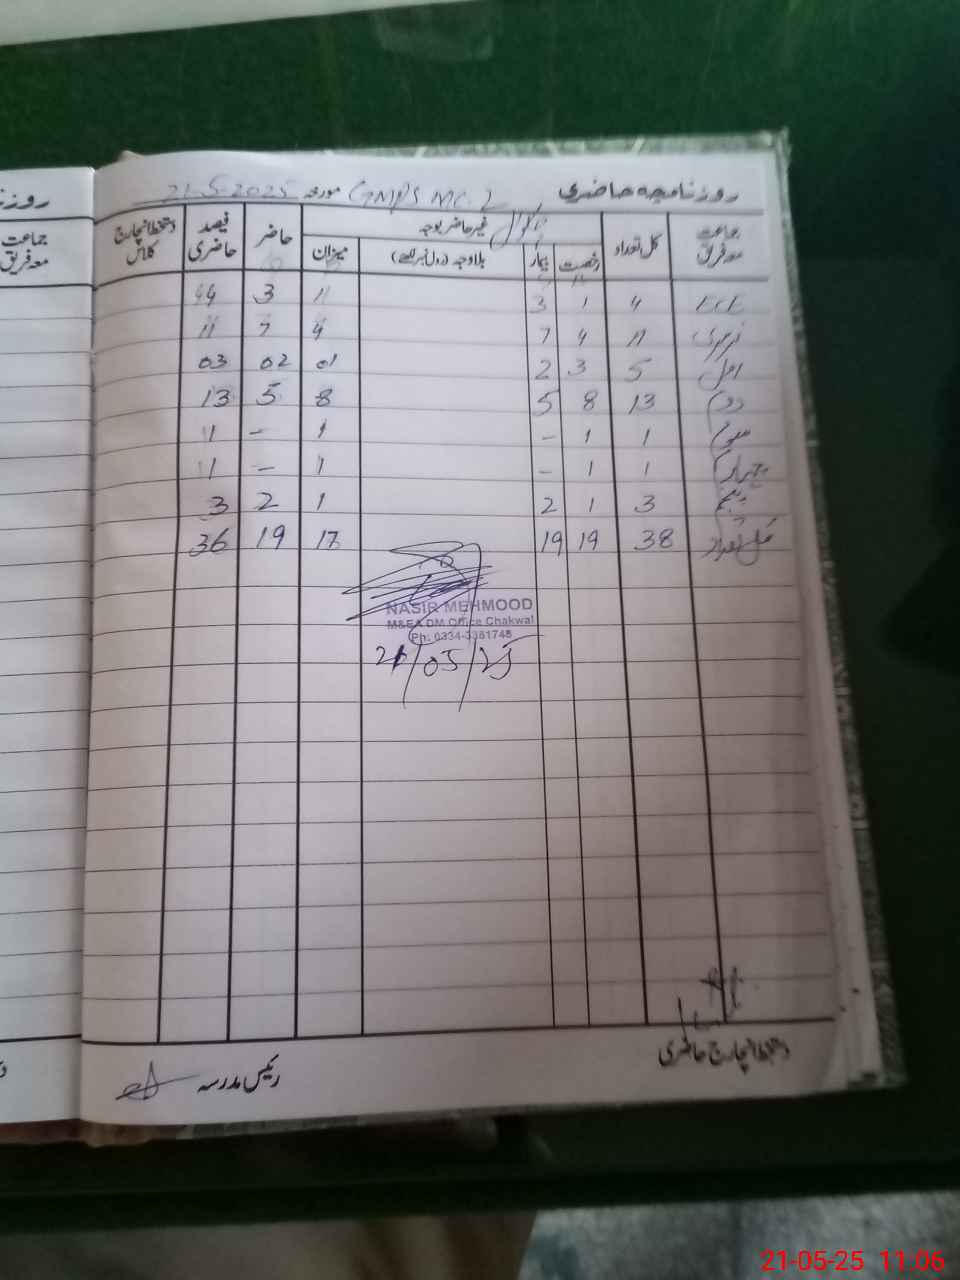 روزنامچہ حاضری GMPS MC. 2 مورخہ 21-5-2025
چکوال
جماعت معہ فریق کل تعداد غیر حاضر بوجہ حاضر فیصد حاضری دستخط انچارج کلاس
رخصت بیمار بلاوجہ (رول نمبر لکھئے) میزان
ECE 4 1 3 11 3 44
نرسری 11 4 7 4 7 11
اول 5 3 2 01 02 03
دوم 13 8 5 8 5 13
سوم 1 1 - 1 - 1
چہارم 1 1 - 1 - 1
پنجم 3 1 2 1 2 3
کل تعداد 38 19 19 17 19 36
NASIR MEHMOOD
M&EA DM Office Chakwal
21/05/25
دستخط انچارج حاضری
رئیس مدرسہ
روزنا
جماعت
معہ فریق
21-05-25 11:06